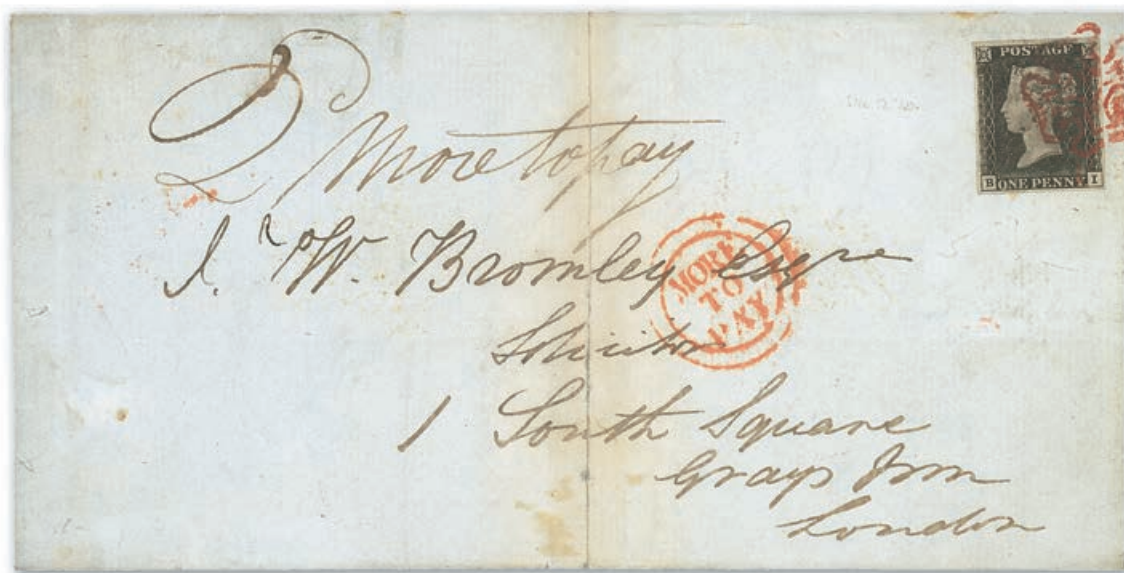 POSTAGE
B ONE PENNY I
2
More to pay
J. W. Bromley Esqre
MORE
TO
PAY
Solicitor
1 South Square
Grays Inn
London